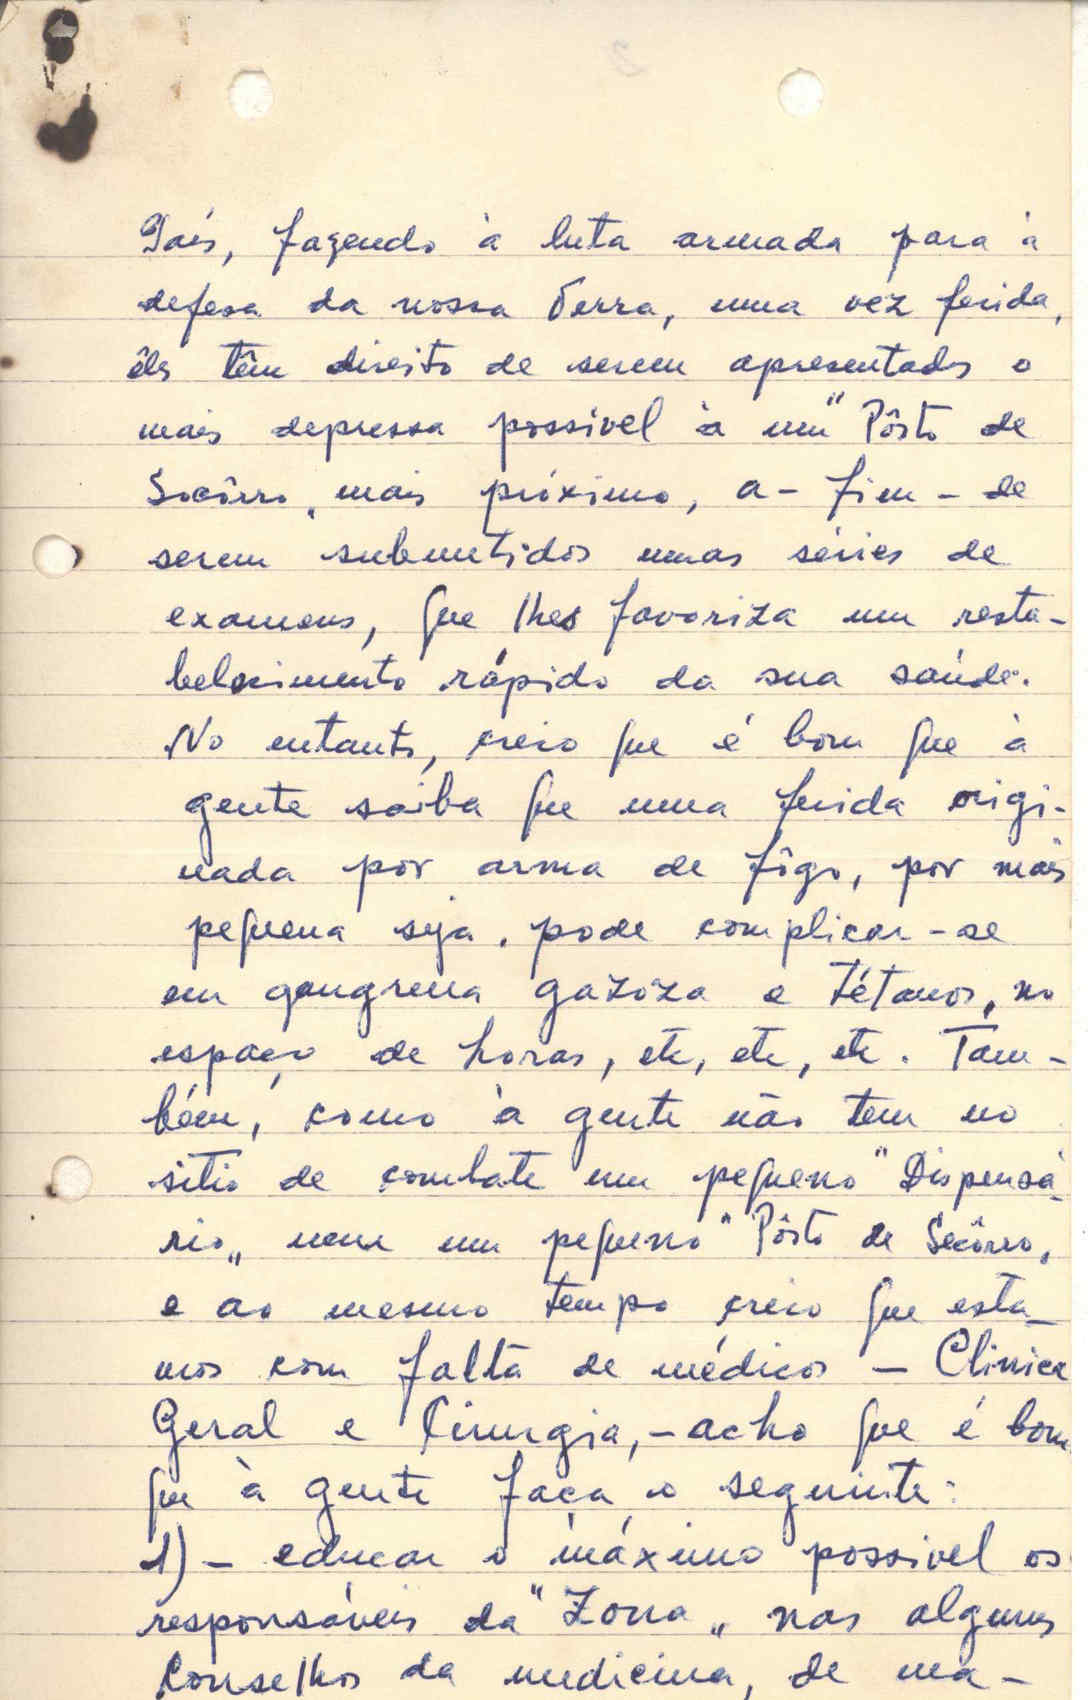 País, fazendo à luta armada para à
defesa da nossa Terra, uma vez ferida,
êles têm direito de serem apresentados o
mais depressa possivel à um "Pôsto de
Socôrro„ mais próximo, a-fim-de
serem submetidos umas séries de
examens, que lhes favoriza um resta-
belecimento rápido da sua saúde.
No entanto, creio que é bom que à
gente saiba que uma ferida origi-
nada por arma de fôgo, por mais
pequena seja, pode complicar-se
em gangrena gazoza e tétanos, no
espaço de horas, etc, etc, etc. Tam-
bém, como à gente não tem no
sitio de combate um pequeno "Dispensá-
rio„ nem um pequeno "Pôsto de Socôrro,
e ao mesmo tempo creio que esta-
mos com falta de médicos - Clinica
Geral e Cirurgia,-acho que é bom
que à gente faça o seguinte:
1)- educar o máximo possivel os
responsáveis da "Zona„ nas algumas
Conselhos da medicina, de ma-